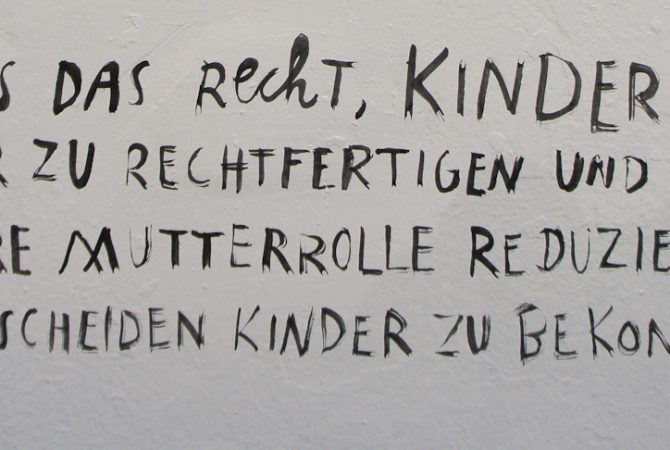 S DAS RECHT, KINDER
R ZU RECHTFERTIGEN UND
RE MUTTERROLLE REDUZIE
SCHEIDEN KINDER ZU BEKOM